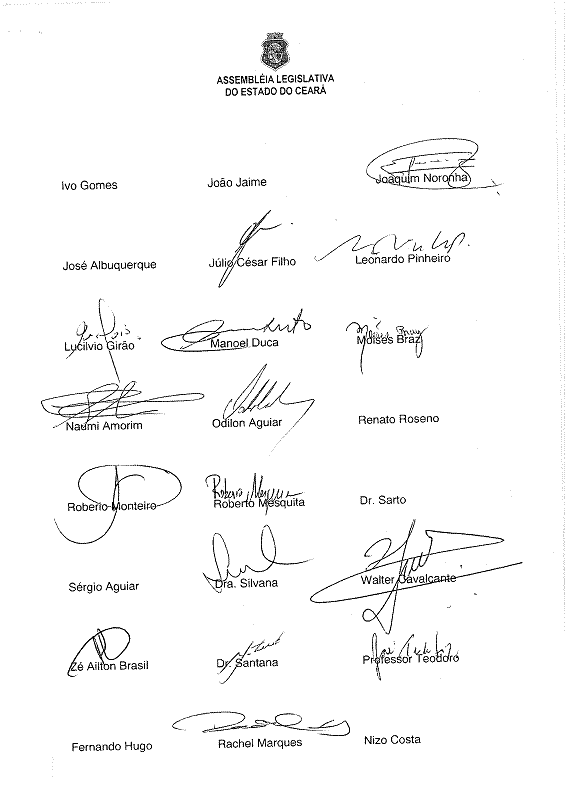 ASSEMBLÉIA LEGISLATIVA
DO ESTADO DO CEARÁ
Ivo Gomes João Jaime Joaquim Noronha
José Albuquerque Júlio César Filho Leonardo Pinheiro
Lucílvio Girão Manoel Duca Moisés Braz
Naumi Amorim Odilon Aguiar Renato Roseno
Roberio Monteiro Roberto Mesquita Dr. Sarto
Sérgio Aguiar Dra. Silvana Walter Cavalcante
Zé Ailton Brasil Dr. Santana Professor Teodoro
Fernando Hugo Rachel Marques Nizo Costa